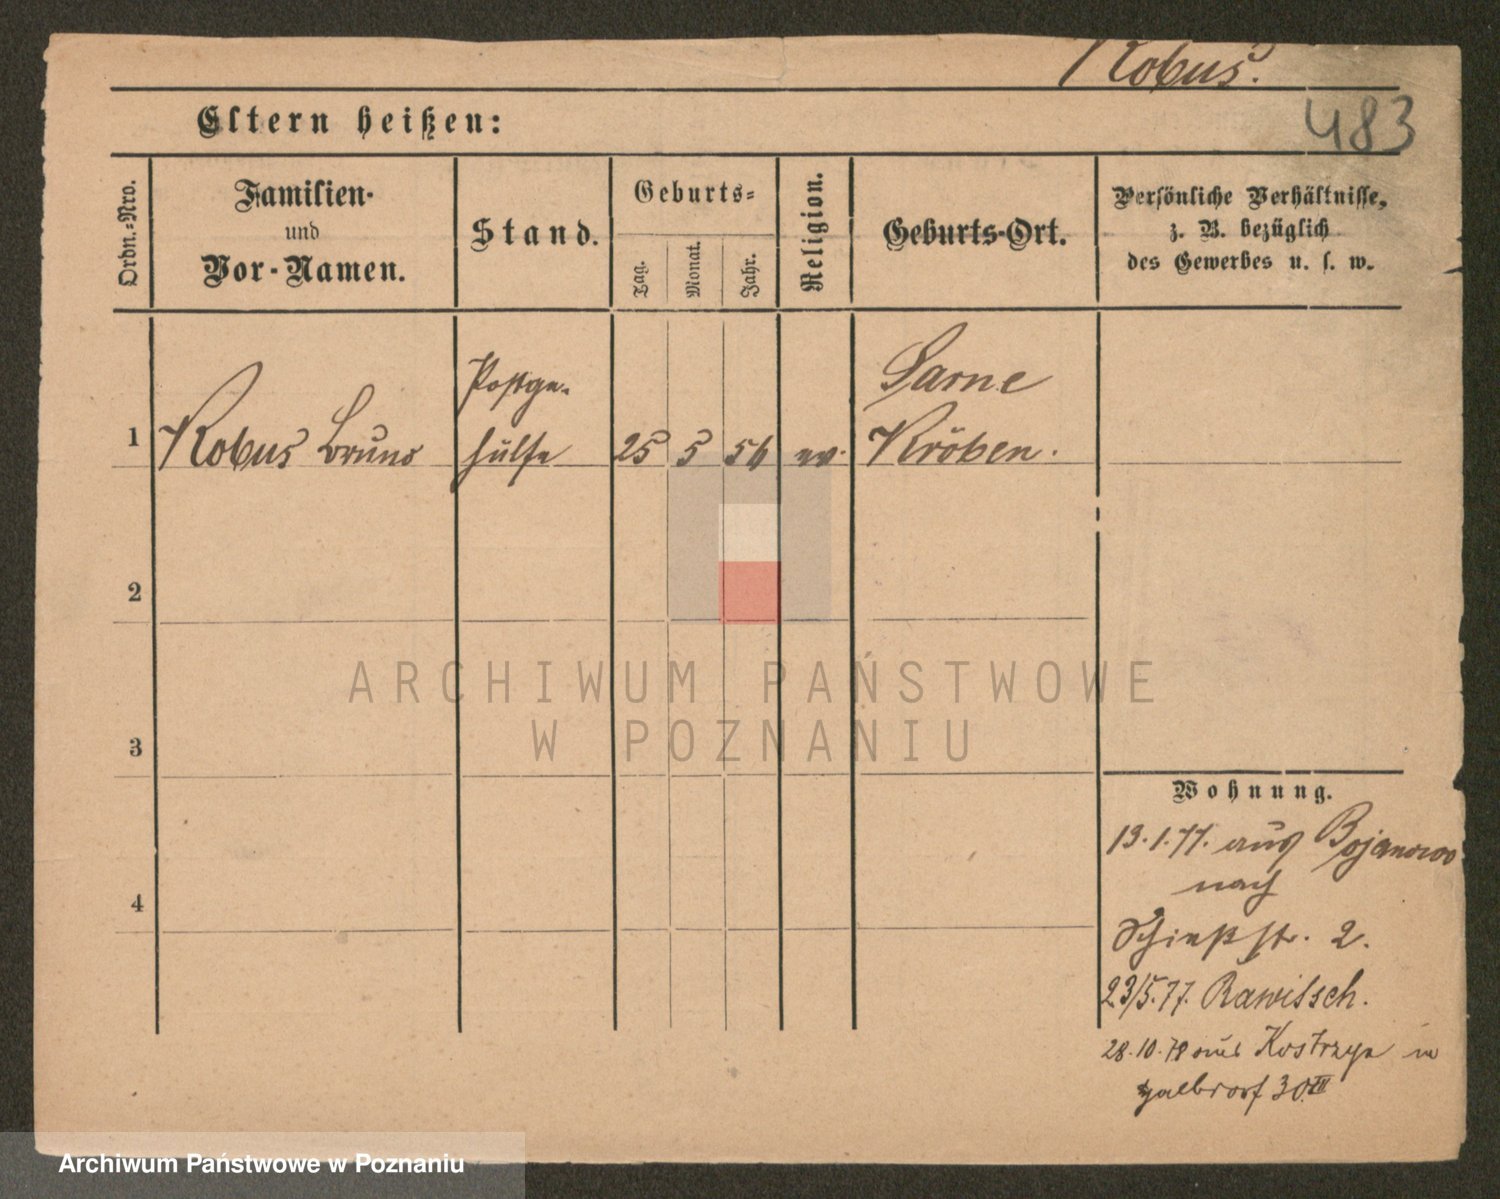 Kobus.
483
Eltern heißen:
Ordn.-Nro.
Familien-
und
Vor-Namen.
Stand.
Geburts-
Tag.
Monat.
Jahr.
Religion.
Geburts-Ort.
Persönliche Verhältnisse,
z. B. bezüglich
des Gewerbes u. s. w.
1
Kobus Bruno
Postge-
hülfe
25
5
56
ev.
Sarne
Kröben.
2
3
4
Wohnung.
13.1.77. aus Bojanowo
nach
Schießstr. 2.
23/5.77. Rawitsch.
28.10.78 aus Kostrzyn in
Halbdorf 30.III
ARCHIWUM PAŃSTWOWE
W POZNANIU
Archiwum Państwowe w Poznaniu